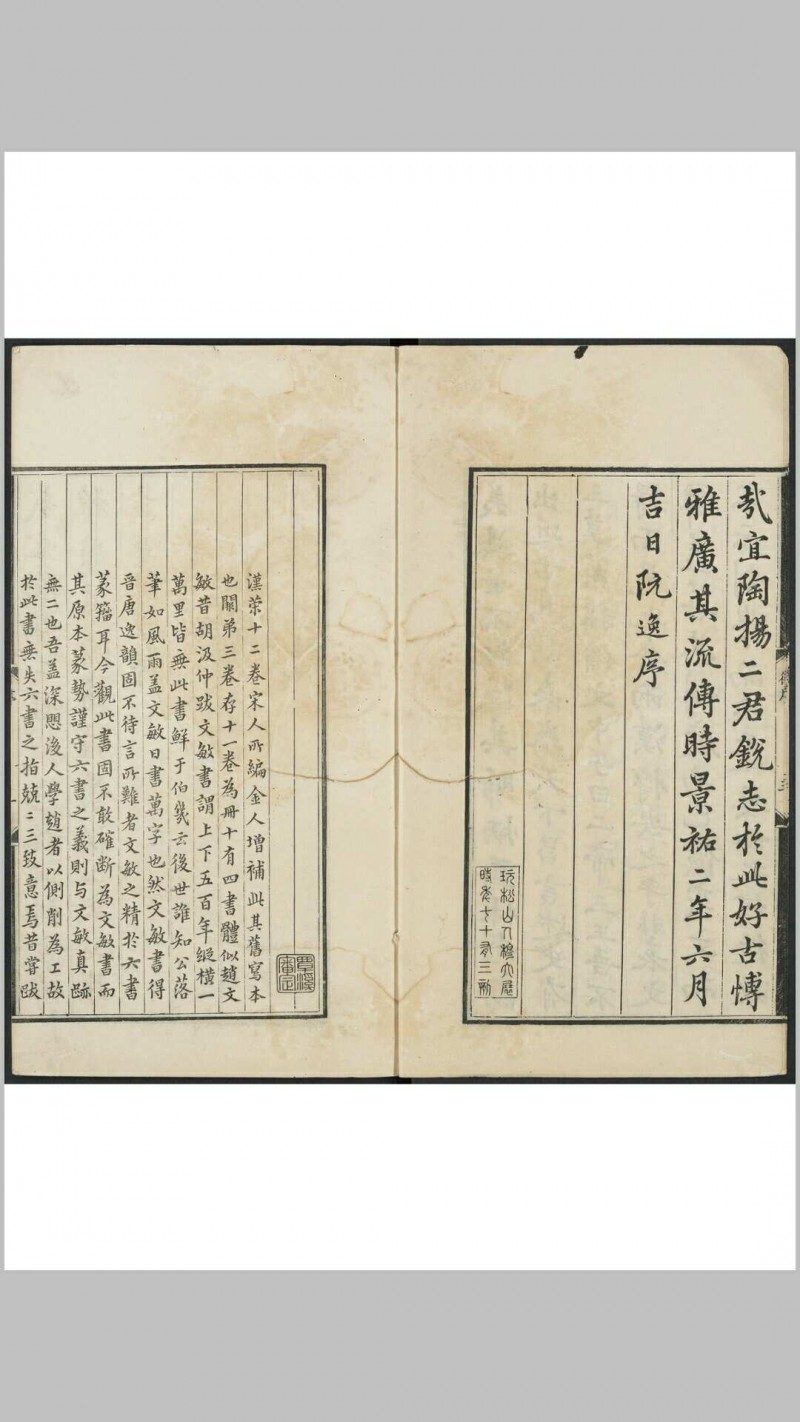 哉宜陶揚二君銳志於此好古博
雅廣其流傳時景祐二年六月
吉日阮逸序
玩松山人穆大展
時年七十有三刻
覃溪
審定
漢菜十二卷宋人所編金人增補此其舊寫本
也闕弟三卷存十一卷為冊十有四書體似趙文
敏昔胡汲仲跋文敏書謂上下五百年縱橫一
萬里皆無此書鮮于伯幾云後世誰知公落
筆如風雨盖文敏日書萬字也然文敏書得
晉唐逸韻固不待言所難者文敏之精於六書
篆籀耳今觀此書固不敢確斷為文敏書而
其原本篆勢謹守六書之義則与文敏真跡
無二也吾盖深思後人學趙者以側削為工故
於此書無失六書之指兢〻三致意焉昔嘗跋